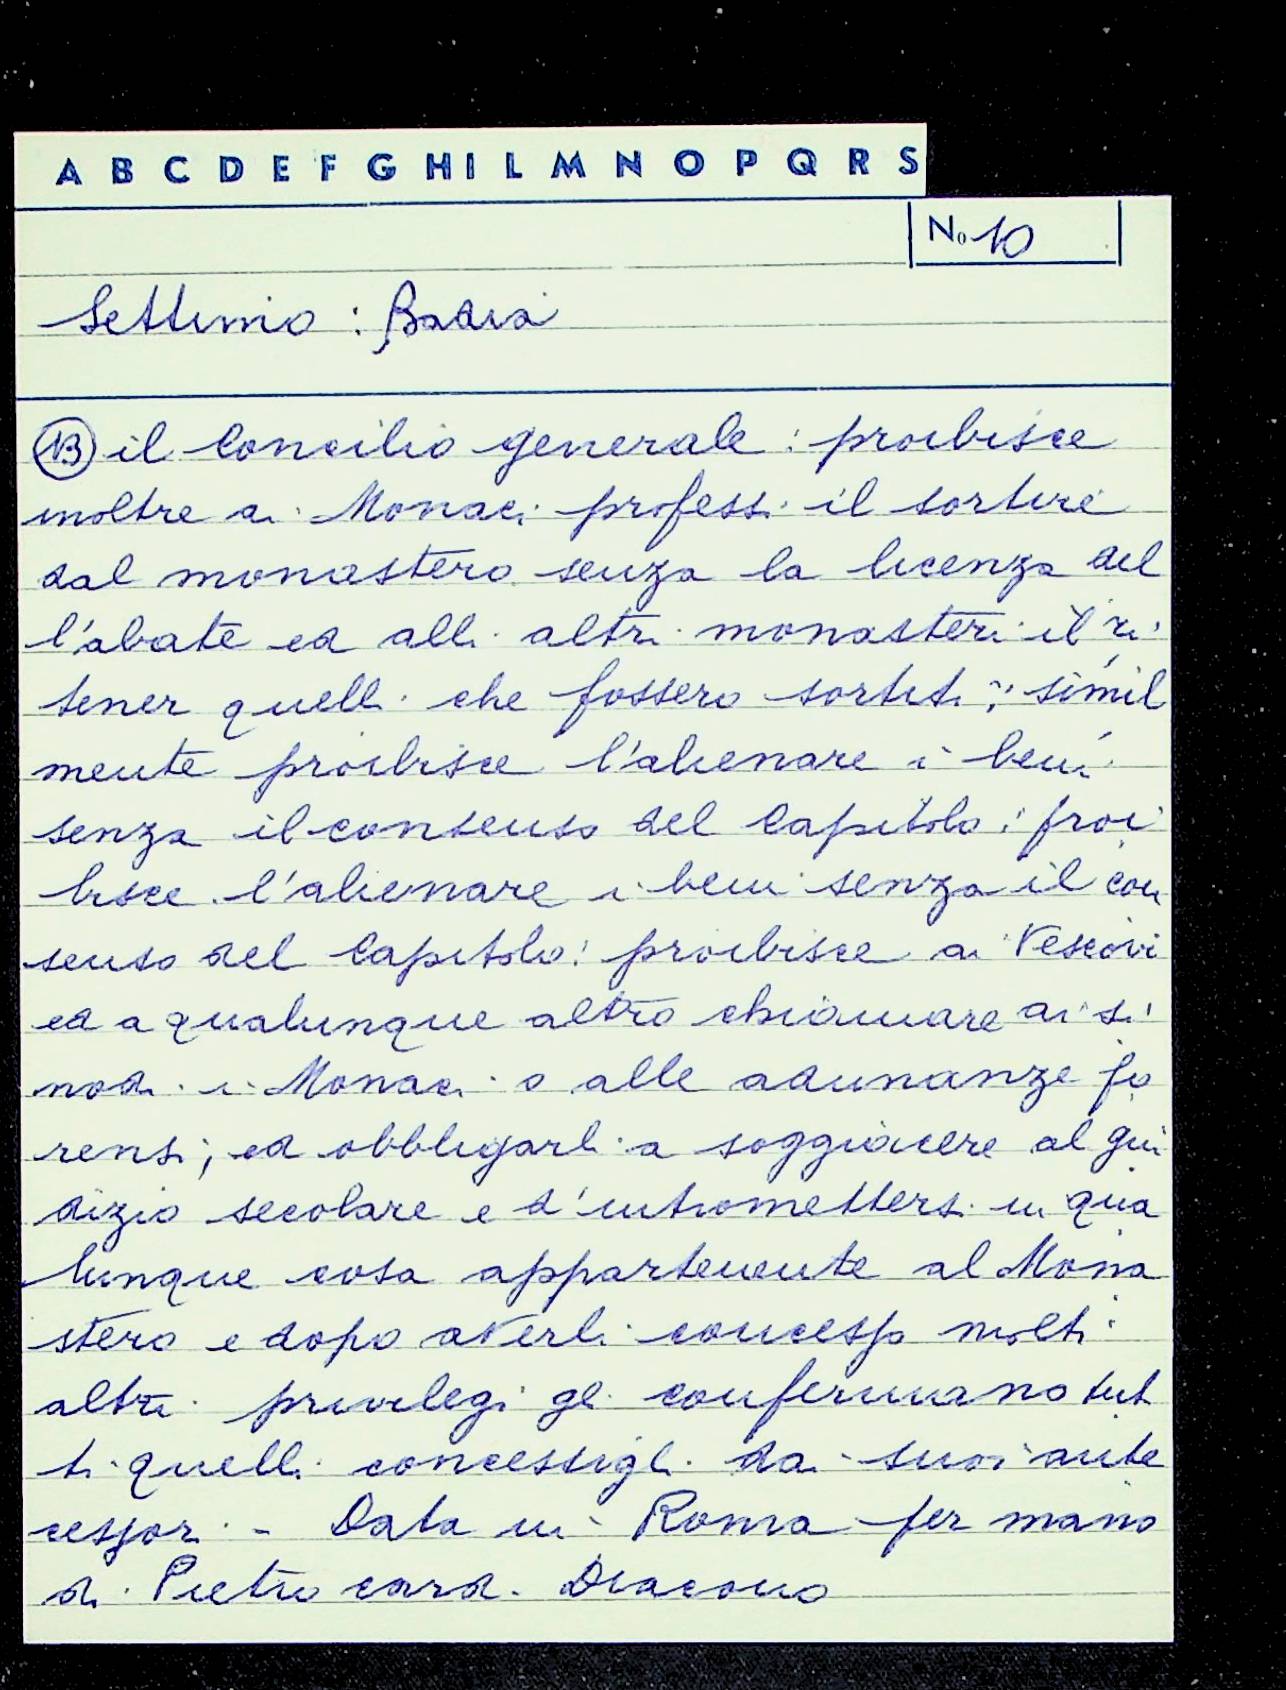 A B C D E F G H I L M N O P Q R S
No 10
Settimo : Badia
(13) il Concilio generale : proibisce
inoltre ai Monaci professi il sortire
dal monastero senza la licenza del
l'abate ed alli altri monasteri il ri
tener quelli che fossero sortiti ; simil
mente proibisce l'alienare i beni
senza il consenso del Capitolo : proi
bisce l'alienare i beni senza il con
senso del Capitolo : proibisce ai Vescovi
ed a qualunque altro chiamare ai si
nodi i Monaci o alle adunanze fo
rensi ; ed obbligarli a soggiacere al giu
dizio secolare e d'intromettersi in qua
lunque cosa appartenente al Mona
stero e dopo averli concesso molti
altri privilegi gli confermano tut
ti quelli concessigli dai suoi ante
cessori - Data in Roma per mano
di Pietro card. Diacono